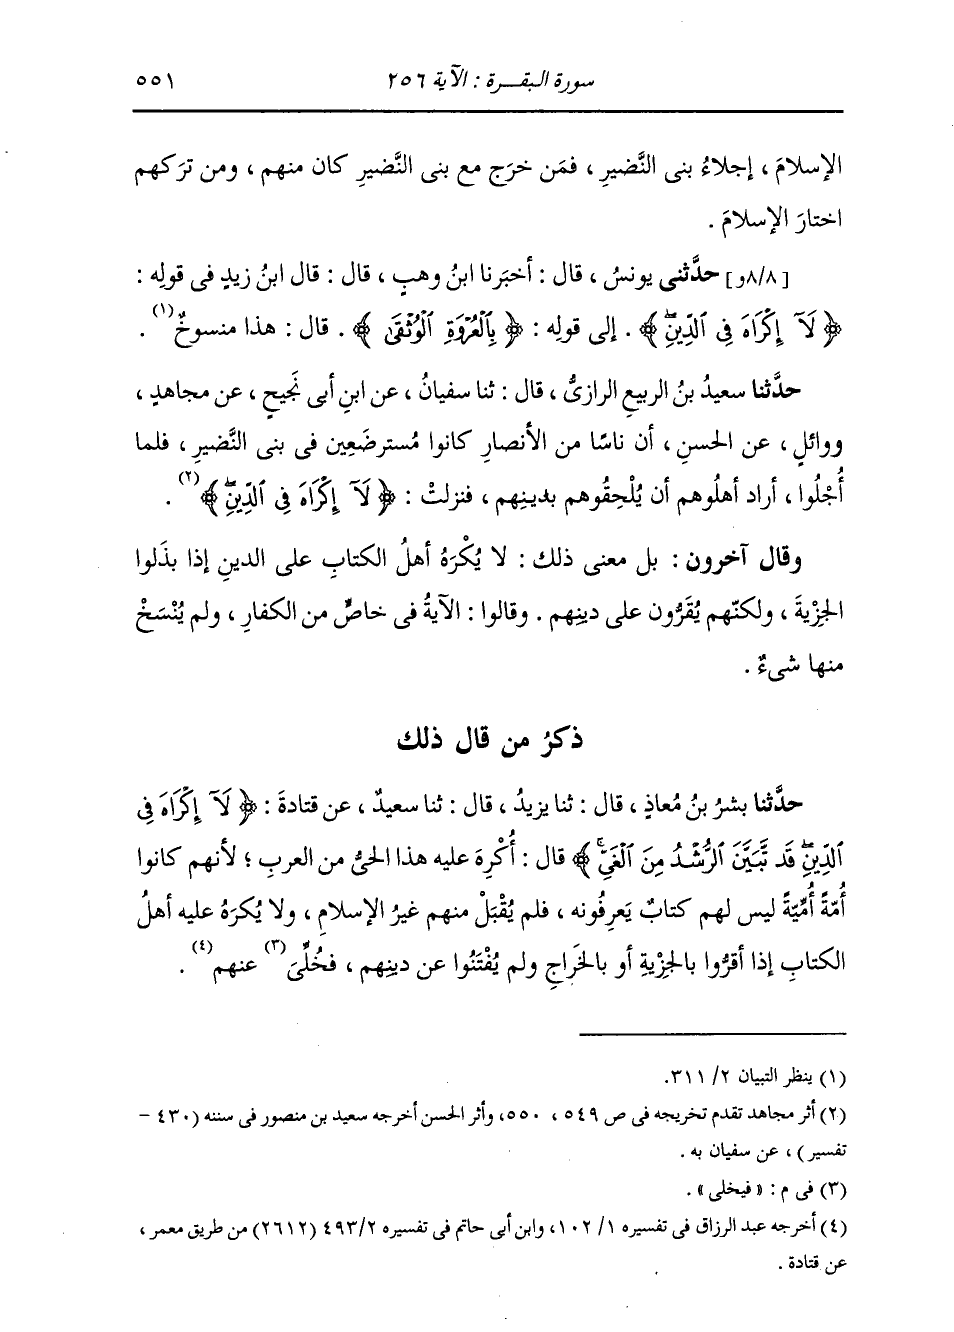 سورة البقـــرة : الآية ٢٥٦ ٥٥١
الإسلامَ ، إجلاءُ بنى النَّضيرِ ، فمَن خرَج مع بنى النَّضيرِ كان منهم ، ومن ترَكهم
اختارَ الإسلامَ .
[٨/٨و] حدَّثنى يونسُ ، قال : أخبَرنا ابنُ وهبٍ ، قال : قال ابنُ زيدٍ فى قولِه :
﴿ لَآ إِكْرَاهَ فِى ٱلدِّينِۖ ﴾ . إلى قولِه : ﴿ بِٱلْعُرْوَةِ ٱلْوُثْقَىٰ ﴾ . قال : هذا منسوخٌ (١) .
حدَّثنا سعيدُ بنُ الربيعِ الرازىُّ ، قال : ثنا سفيانُ ، عن ابنِ أبى نَجيحٍ ، عن مجاهدٍ ،
ووائلٍ ، عن الحسنِ ، أن ناسًا من الأنصارِ كانوا مُسترضَعِين فى بنى النَّضيرِ ، فلما
أُجْلُوا ، أراد أهلُوهم أن يُلْحِقُوهم بدينِهم ، فنزلتْ : ﴿ لَآ إِكْرَاهَ فِى ٱلدِّينِۖ ﴾ (٢) .
وقال آخرون : بل معنى ذلك : لا يُكْرَهُ أهلُ الكتابِ على الدينِ إذا بذَلوا
الجِزْيةَ ، ولكنّهم يُقَرُّون على دينِهم . وقالوا : الآيةُ فى خاصٍّ من الكفارِ ، ولم يُنْسَخْ
منها شىءٌ .
ذكرُ من قال ذلك
حدَّثنا بشرُ بنُ مُعاذٍ ، قال : ثنا يزيدُ ، قال : ثنا سعيدٌ ، عن قتادةَ : ﴿ لَآ إِكْرَاهَ فِى
ٱلدِّينِۖ قَد تَّبَيَّنَ ٱلرُّشْدُ مِنَ ٱلْغَيِّۚ ﴾ قال : أُكْرِهَ عليه هذا الحىُّ من العربِ ؛ لأنهم كانوا
أُمّةً أُمِّيّةً ليس لهم كتابٌ يَعرِفُونه ، فلم يُقْبَلْ منهم غيرُ الإسلامِ ، ولا يُكرَهُ عليه أهلُ
الكتابِ إذا أقرُّوا بالجِزْيةِ أو بالخَراجِ ولم يُفْتَنُوا عن دينِهم ، فخُلِّىَ (٣) عنهم (٤) .
(١) ينظر التبيان ٢/ ٣١١.
(٢) أثر مجاهد تقدم تخريجه فى ص ٥٤٩ ، ٥٥٠، وأثر الحسن أخرجه سعيد بن منصور فى سننه (٤٣٠ -
تفسير) ، عن سفيان به .
(٣) فى م : « فيخلى » .
(٤) أخرجه عبد الرزاق فى تفسيره ١/ ١٠٢، وابن أبى حاتم فى تفسيره ٤٩٣/٢ (٢٦١٢) من طريق معمر ،
عن قتادة .